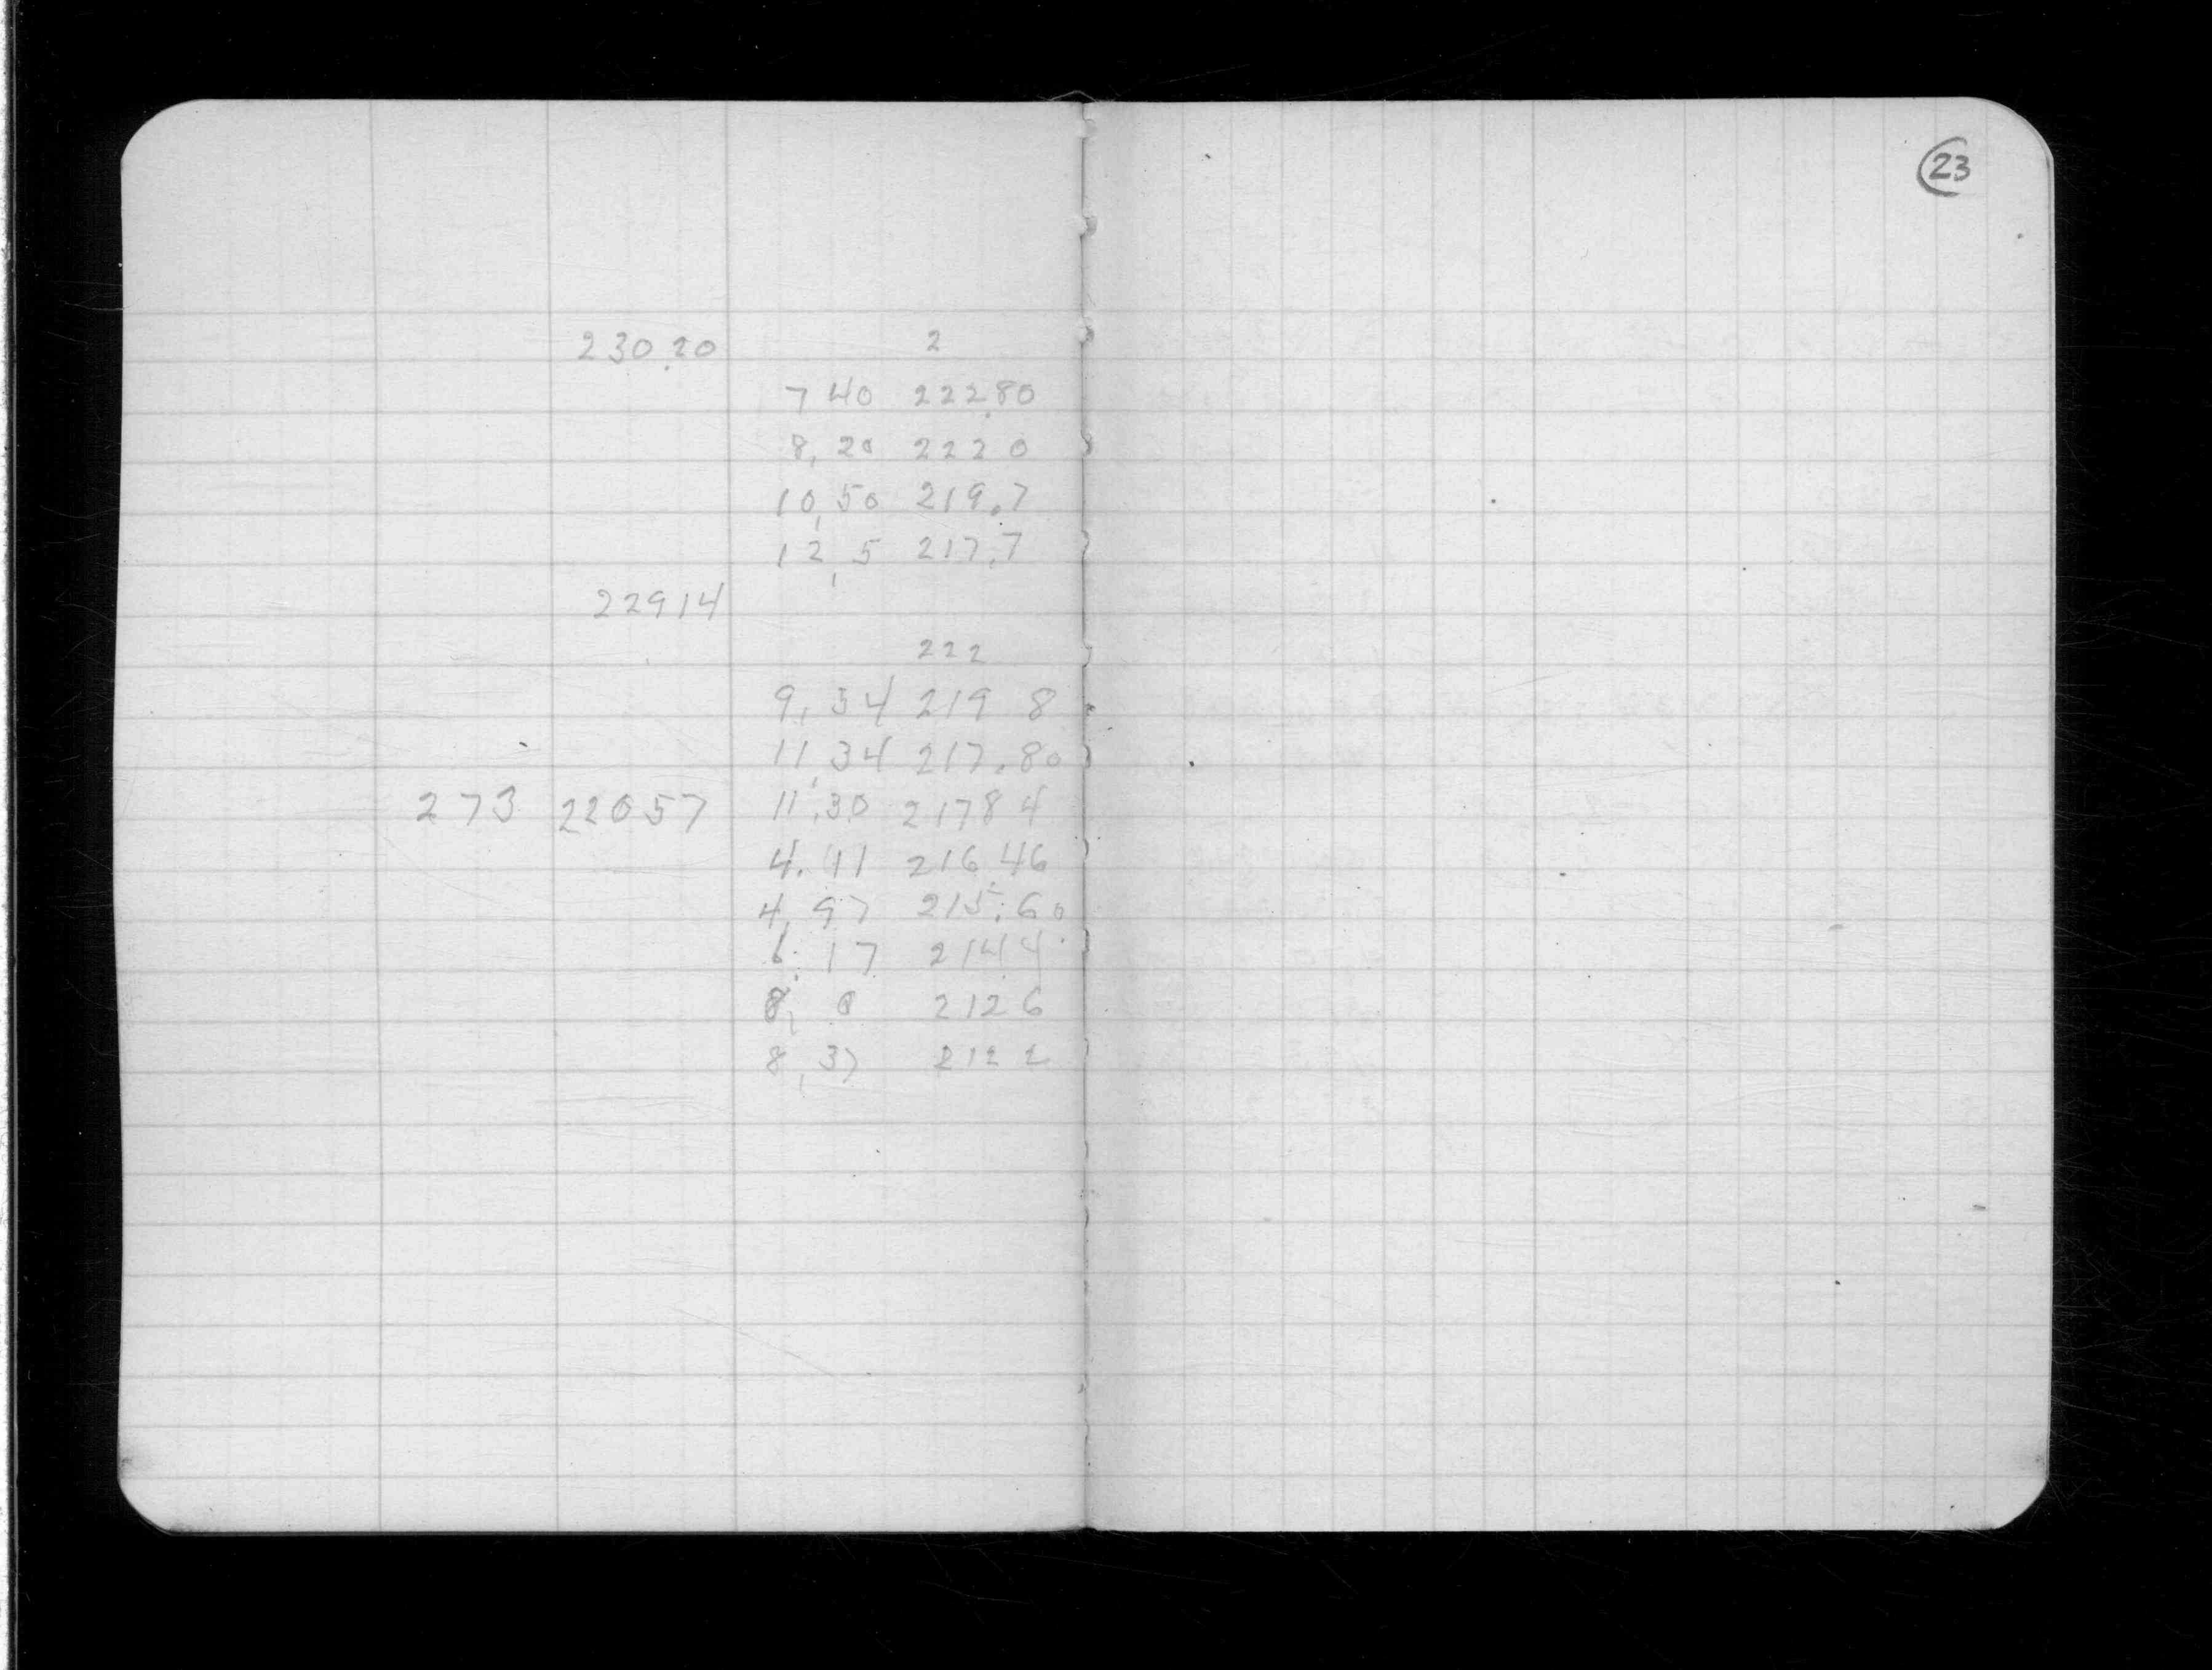 23
230.20 2
7 40 222.80
8, 20 222 0
10,50 219.7
12, 5 217.7
22914
222
9, 34 219 8
11,34 217.80
273 22057 11,30 217 84
4. 11 216.46
4, 97 215.60
6. 17 214 4
8, 0 212 6
8, 37 212 2